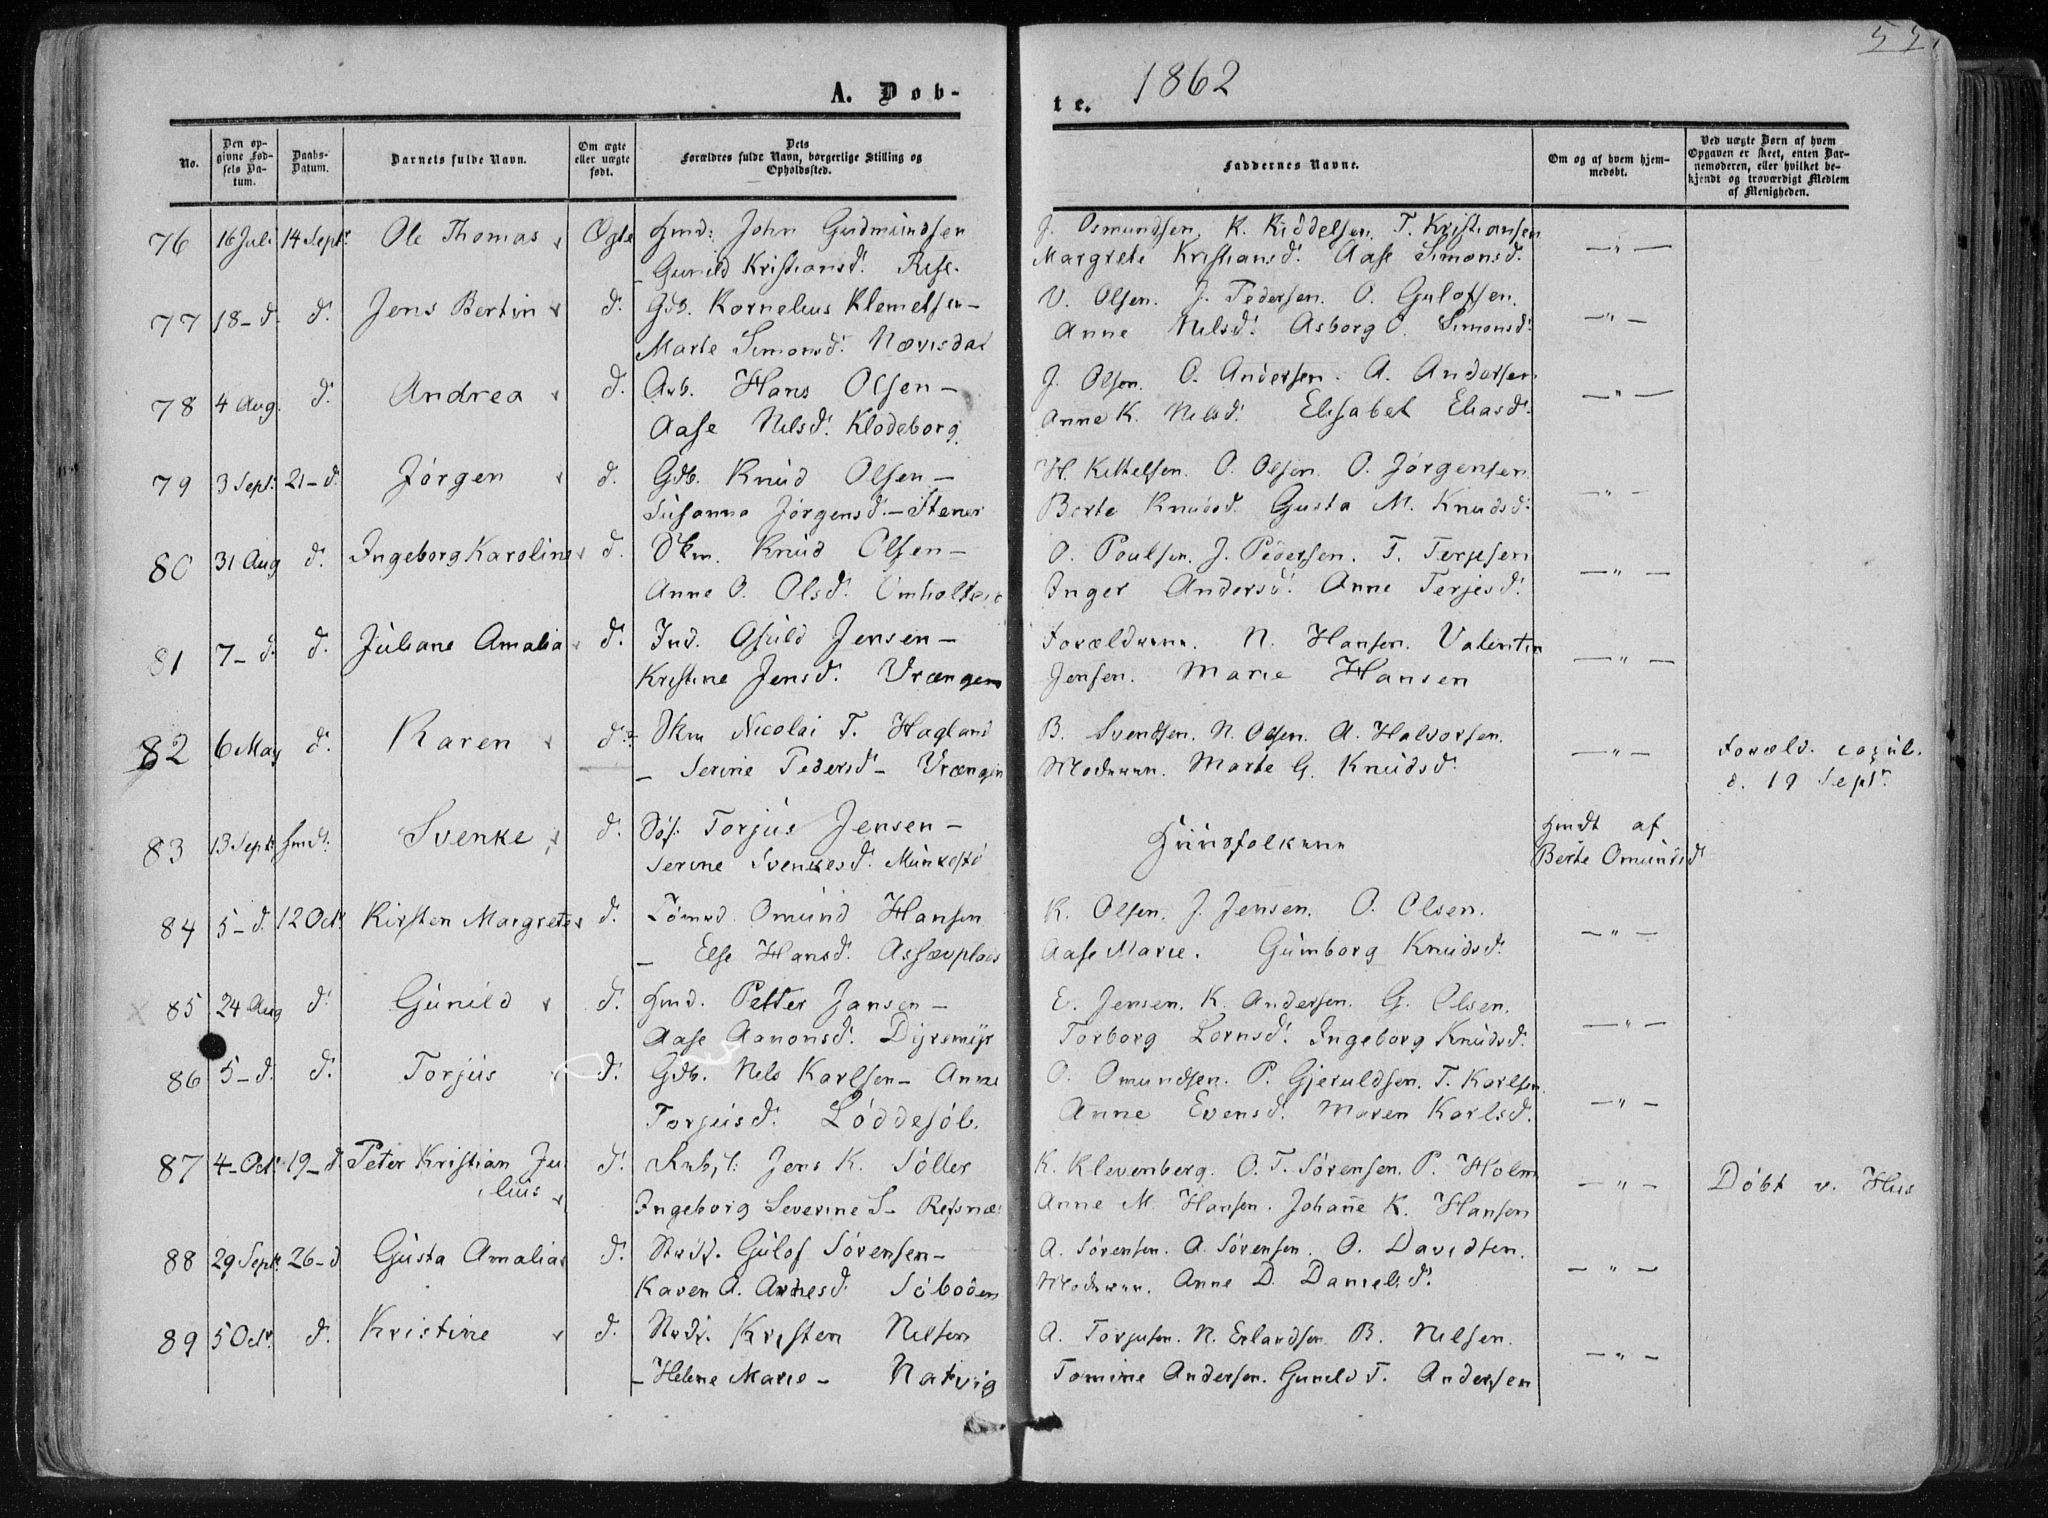 55.
A. Døb-
te. 1862
No.
Den opgivne Fødsels Datum.
Daabs-Datum.
Barnets fulde Navn.
Om ægte eller uægte født.
Dets Forældres fulde Navn, borgerlige Stilling og Opholdssted.
Faddernes Navne.
Om og af hvem hjemmedøbt.
Ved uægte Børn af hvem Opgaven er skeet, enten Barnemoderen, eller hvilket bekjendt og troværdigt Medlem af Menigheden.
76 16 Juli 14 Septr. Ole Thomas Ægte Hmd: John Gudmundsen J. Osmundsen. K. Kiddelsen. T. Kristiansen — " —
Gunild Kristiansd. Rise. Margrete Kristiansd. Aase Simonsd.
77 18-d. d. Jens Bertin d. Gdb. Kornelius Klemetsen — O. Olsen. J. Pedersen. O. Gulofsen. — " —
Marte Simonsd. Nævisdal Anne Nilsd. Asborg O. Simonsd.
78 4 Aug. d. Andrea d. Arb. Hans Olsen — J. Olsen. O. Andersen. A. Andersen. — " —
Aase Nilsd. Klodeborg. Anne K. Nilsd. Elisabet Eliasd.
79 3 Sept. 21-d. Jørgen d. Gdb. Knud Olsen — H. Kittelsen. O. Olsen. O. Jørgensen — " —
Susanna Jørgensd. — Stener Berte Knudsd. Gusta M. Knudsd.
80 31 Aug d. Ingeborg Karoline d. Skm. Knud Olsen — O. Poulsen. J. Pedersen. T. Terjesen — " —
Anne O. Olsd. Omholten Inger Andersd. Anne Terjesd.
81 7-d. d. Juliane Amalia d. Ind. Osuld Jensen — Forældrene. N. Hansen. Valentin — " —
Kristine Jensd. Vrængen Jensen. Marie Hansen
82 6 May d. Karen d. Skm Nicolai T. Hagland B. Svendsen. N. Olsen. A. Halvorsen. — " — Foræld. copul.
— Serine Pedersd — Vrængen Moderen. Marte G. Knudsd. d. 19 Septr.
83 13 Sept. hmd. Svenke d. Søf. Torjus Jensen — Huusfolkene Hmdt af
Serine Svenkesd. Berte Omundsd
84 5-d. 12 Oct. Kirsten Margrete d. Tømmd. Omund Hansen K. Olsen. J. Jensen. O. Olsen. — " —
— Else Hansd. Assævplads Aase Marie. Gumborg Knudsd.
85 24 Aug d. Gunild d. Hmd. Petter Jansen — E. Jensen. K. Andersen. G. Olsen. — " —
Aase Aanonsd. Dyremyr Torborg Lornsd. Ingeborg Knudsd.
86 5-d. d. Torjus d. Gdb. Nils Karlsen — Anne O. Omundsen. P. Gjeruldsen. T. Karlsen — " —
Torjusd. Løddesøl. Anne Evensd. Maren Karlsd.
87 4-Oct. 19-d. Peter Kristian Ju- d. Jens K. Søller K. Klevenberg. O. T. Sørensen. P. Holm — " — Døbt v. Hus
lius Ingeborg Severine S— Refsnæs Anne M. Hansen. Johanne K. Hansen
88 29 Sept. 26-d Gusta Amalia d. Gulof Sørensen — A. Sørensen. A. Sørensen. O. Davidsen. — " —
Karen A. Arnesd. Søboden Moderen. Anne D. Danielsd.
89 5 Oct. d. Kristine d. Kristen Nilsen A. Torjusen. N. Erlandsen B. Nilsen. — " —
— Helene Marie — Natvig Tomine Andersen. Gunild T. Andersen